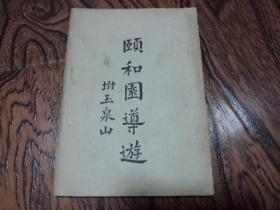 頤和園導遊
坿玉泉山